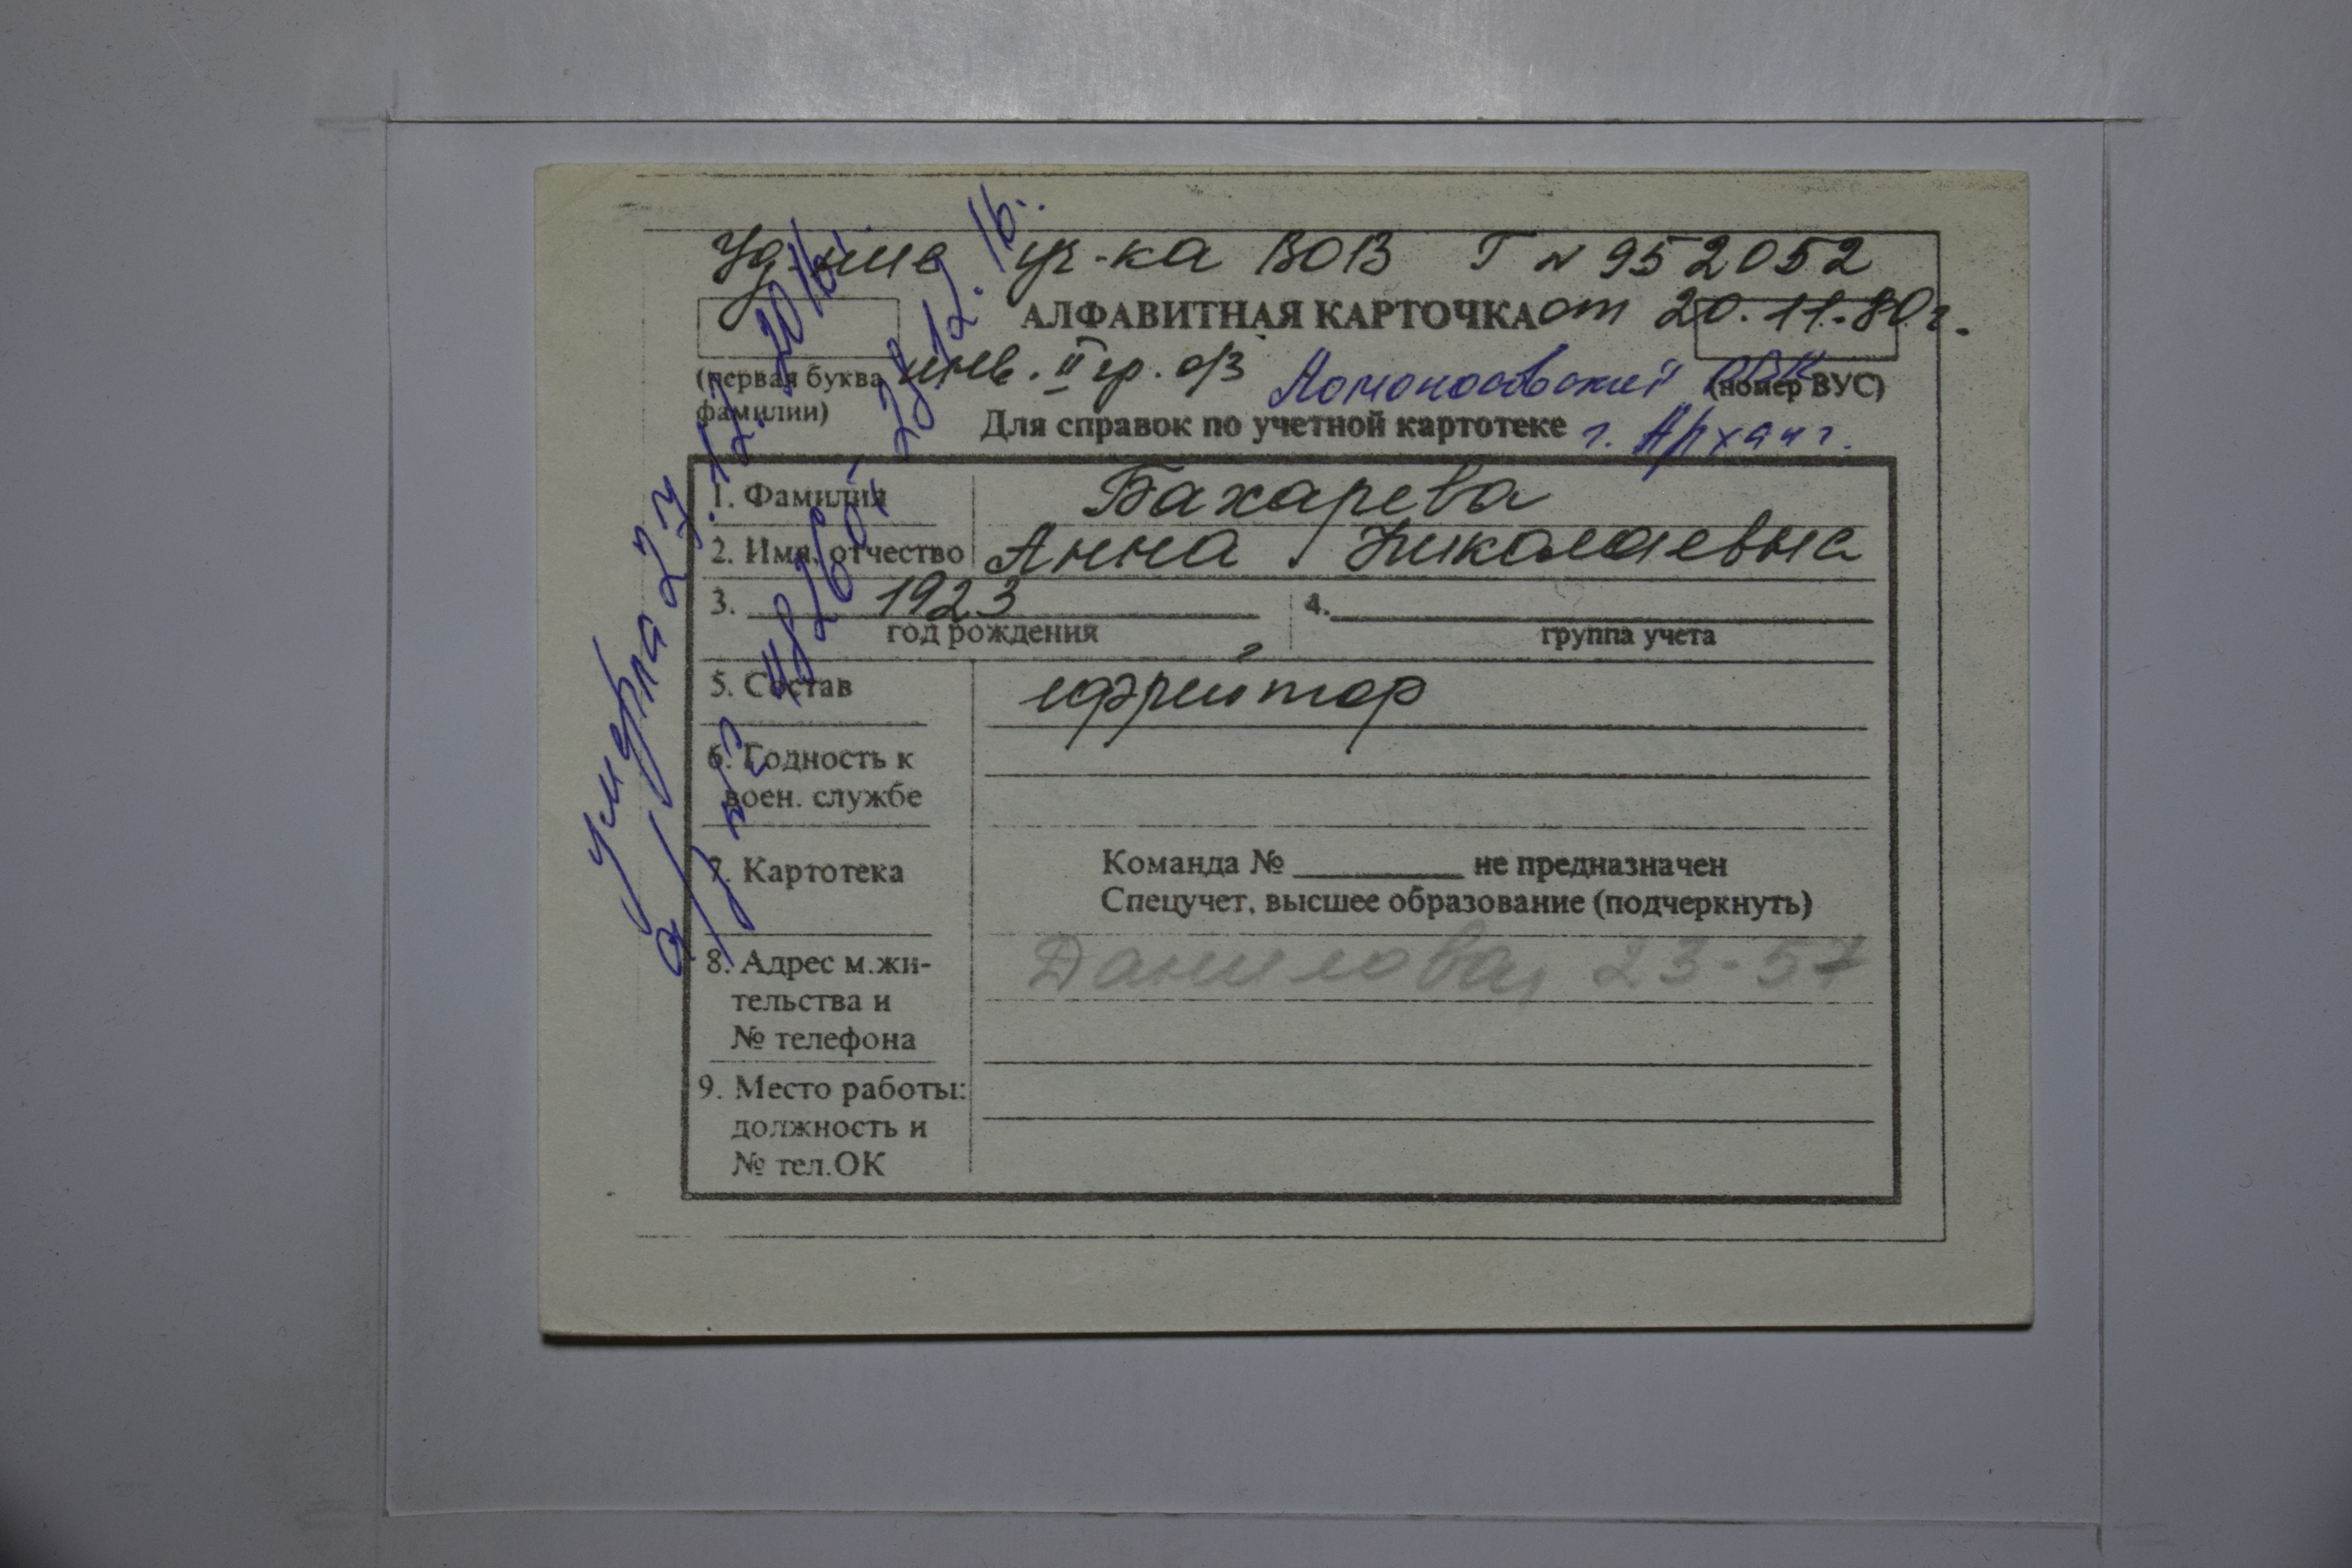 Уд-ние уч-ка ВОВ Г № 952052
АЛФАВИТНАЯ КАРТОЧКА от 20.11.80 г.
(первая буква фамилии)
инв. II гр. о/з Ломоносовский РВК
(номер ВУС)
Для справок по учетной картотеке г. Арханг.
1. Фамилия Бахарева
2. Имя, отчество Анна Николаевна
3. 1923
год рождения
4.
группа учета
5. Состав ефрейтор
6. Годность к
воен. службе
7. Картотека
Команда № не предназначен
Спецучет, высшее образование (подчеркнуть)
8. Адрес м.жи-
тельства и
№ телефона
Данилова, 23-57
9. Место работы:
должность и
№ тел.ОК
умерла 27.12.2016г.